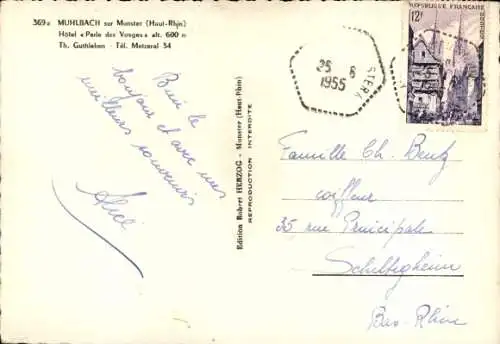 369a MUHLBACH sur Munster (Haut-Rhin)
Hôtel « Perle des Vosges » alt. 600 m
Th. Guthleben - Tél. Metzeral 54
bonjour et avec mes
meilleurs souvenirs
Alice
Edition Robert HERZOG - Munster (Haut-Rhin)
REPRODUCTION INTERDITE
25 8
1955
REPUBLIQUE FRANÇAISE
12F
QUIMPER
Famille Ch. Bentz
coiffeur
35 rue Principale
Schiltigheim
Bas-Rhin